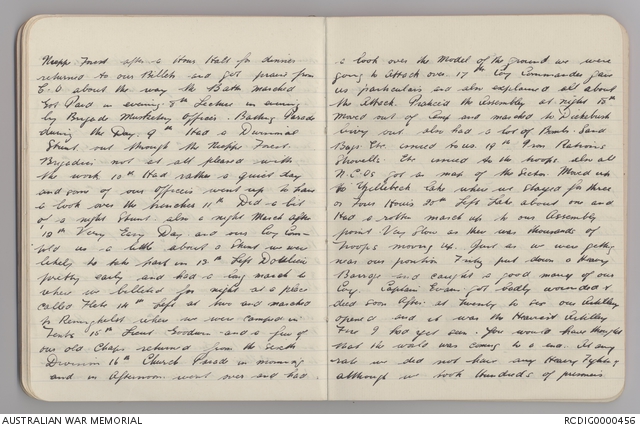 Nieppe Forest after a Hour Halt for dinner
returned to our Billets and got praise from
C.O about the way the Battn marched
Got Paid in evening 8th Lecture in evening
by Brigade Musketry Officer. Bathing Parade
during the Day. 9th Had a Divisional
Stunt out through the Nieppe Forest
Brigadier not at all pleased with
the work 10th Had rather a quiet day
and some of our Officers went up to have
a look over the trenches 11th Did a bit
of a night Stunt. also a night March after
12th Very Easy Day and our Coy Com
told us a little about a Stunt we were
likely to take part in 13th Left
pretty early and had a long march to
where we billeted for night at a place
called Fletre 14th Left at two and marched
to Reninghelst where we were camped in
Tents 15th Lieut Goodwin and a few of
our old Chaps returned from the
Division 16th Church Parade in morning
and in Afternoon went over and had
a look over the Model of the ground we were
going to Attack over. 17th Coy Commander gave
us particulars and also explained all about
the Attack. Practiced the Assembly at night 18th
Moved out of Camp and marched to Dickebush
bivvy out also had a lot of Bombs. Sand
Bags Etc issued to us. 19th Iron Rations
Shovells Etc issued to the troops also all
N.C.Os got a map of the Sector. Moved up
to Zillebeck Lake where we stayed for three
or Four Hours 20th Left Lake about one and
Had a rotten march up to our Assembly
point Very Slow as there was thousands of
troops moving up. Just as we were getting
near our position Fritz put down a Heavy
Barrage and caught a good many of our
Coy. Captain Evans got badly wounded &
died soon After. at Twenty to six our Artillery
opened and it was the Heaviest Artillery
Fire I had yet seen. You would have thought
that the world was coming to a end. At any
rate we did not have any Heavy Fighting
although we took Hundreds of prisoners
AUSTRALIAN WAR MEMORIAL
RCDIG0000456